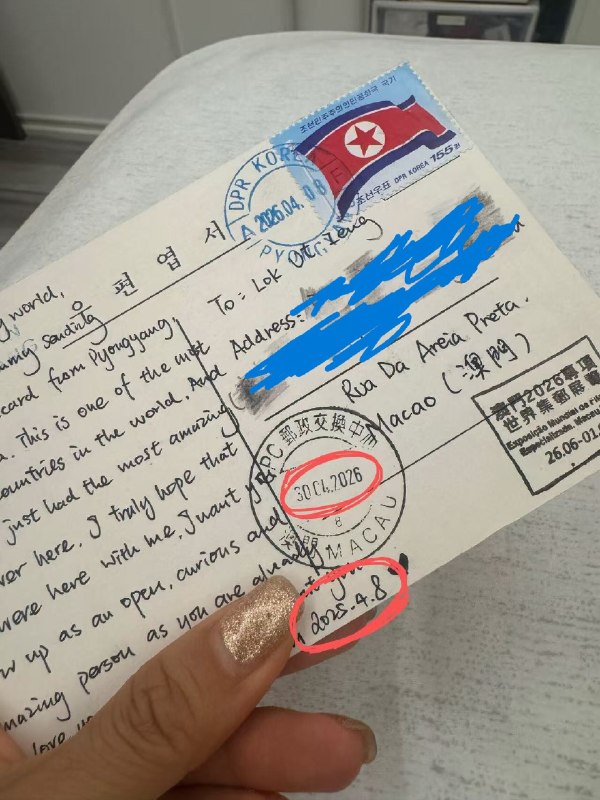 조선민주주의인민공화국 국기
조선우표 DPR KOREA 155원
DPR KOREA
A 2026.04.08
PY
우 편 엽 서
world,
sending
card from Pyongyang,
. This is one of the most
countries in the world. And
just had the most amazing
ver here. I truly hope that
were here with me. I want
up as an open, curious and
mazing person as you are already
love
To: Lok
Address:
Rua Da Areia Preta.
Macao (澳門)
郵政交換中心
30 04.2026
澳門 MACAU
澳門2026專項
世界集郵展覽
Exposição Mundial de
Especializada, Macau
26.06-01.0
2025.4.8